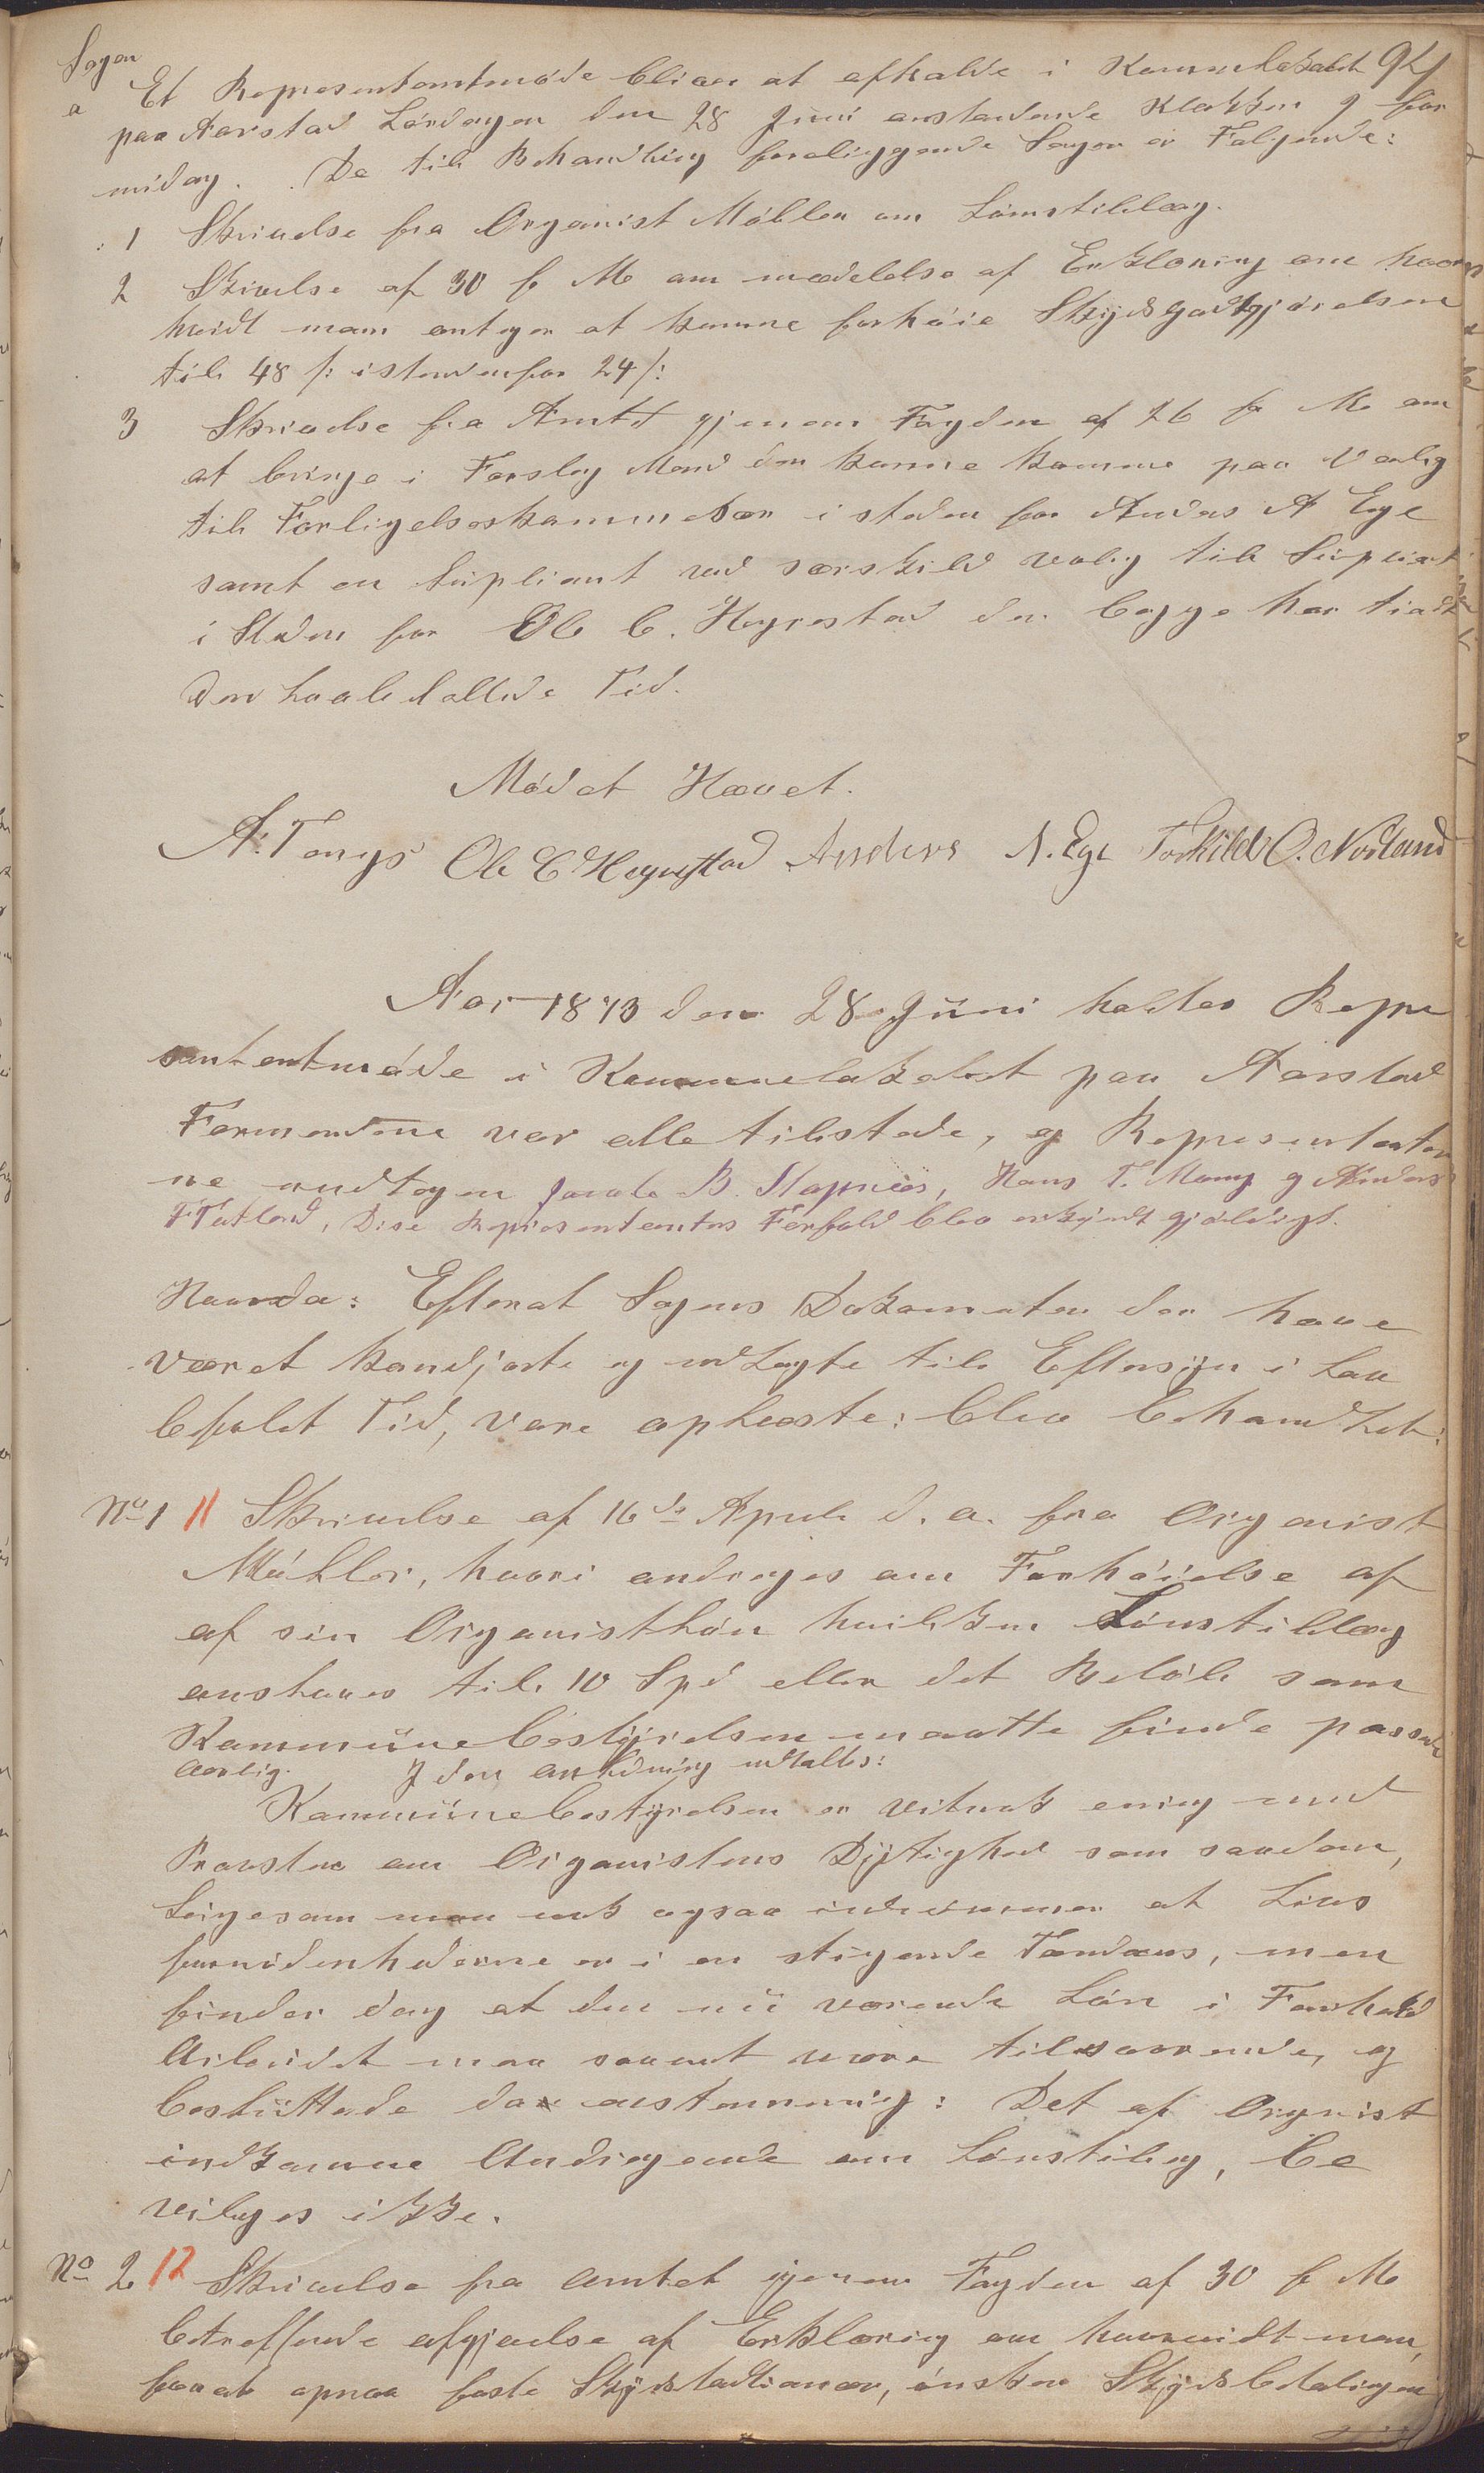 Sagen
a Et Representantmøde bliver at afholde i Kommulokalet 94
paa Aarstad Lørdagen den 28 Juni anstaaende Klokken 9 for
midag. De til Behandling foreliggende Sager er Følgende:
1 Skrivelse fra Organist Møhler om Lønstillæg.
2 Skrivelse af 30 f M om medelelse af Erklæring om hvor
hvidt man antager at kunne forhøie Skydsgodtgjørelsen
til 48 /: istedenfor 24/:
3 Skrivelse fra Amtet gjenem Fogden af 26 f M om
at bringe i Forslag Mænd der kunne komme paa Valg
til Forligelseskommisær i steden for Anders A Ege
samt en Supliant ved særskild valg til Supliant
i Steden for Ole C. Hegrestad der begge har tient
den lovbefallede Tid.
Mødet Hævet.
A. Tengs Ole C Hegrestad Anders A. Ege Torkild O. Nodland
Aar 1873 den 28 Juni holtes Repre
sentantmøde i Kommunelokalet paa Aarstad
Formendene var alle tilstede, og Representanter
ne undtagen Jacob B. Slapnes, Hans T. Mong og Anders
T Tatland, Dise Representanters Forfald blev erkjendt gjældigt.
Hvorda: Efterat Sagens Dokomenter der have
været kundjorte og udlagte til Eftersyn i Lov
befalet Tid, vare oplæste: blev behandlet:
No 1 11 Skrivelse af 16de April d. a. fra Organist
Møhler, hvori andrages om Forhøielse af
af sin Organistløn hvilken Lønstillæg
anslaaes til 10 Spd eller det Beløb som
Kommunebestyrelsen maatte finde passende
aarlig. I den anledning udtaltes:
Kommunebestyrelsen er vitnok enig med
Provsten om Organistens Dygtighed som saadan,
Ligesom man nok ogsaa indrømmer at Livs
fornødenhederne er i en stigende Tendens, men
finder dog at den nu værende Løn i Forhold
Arbeidet maa saavidt være tilsvarende, og
besluttede da enstemmig: Det af Orgnist
indkomne Andragende om Lønstileg, be
vilges ikke.
No 2 12 Skrivelse fra amtet gjenem Fogden af 30 f M
betreffende afgjevelse af Erklæring om hvorvidt man,
for at opnaa faste Skydsstationer, ønsker Skydsbetalingen